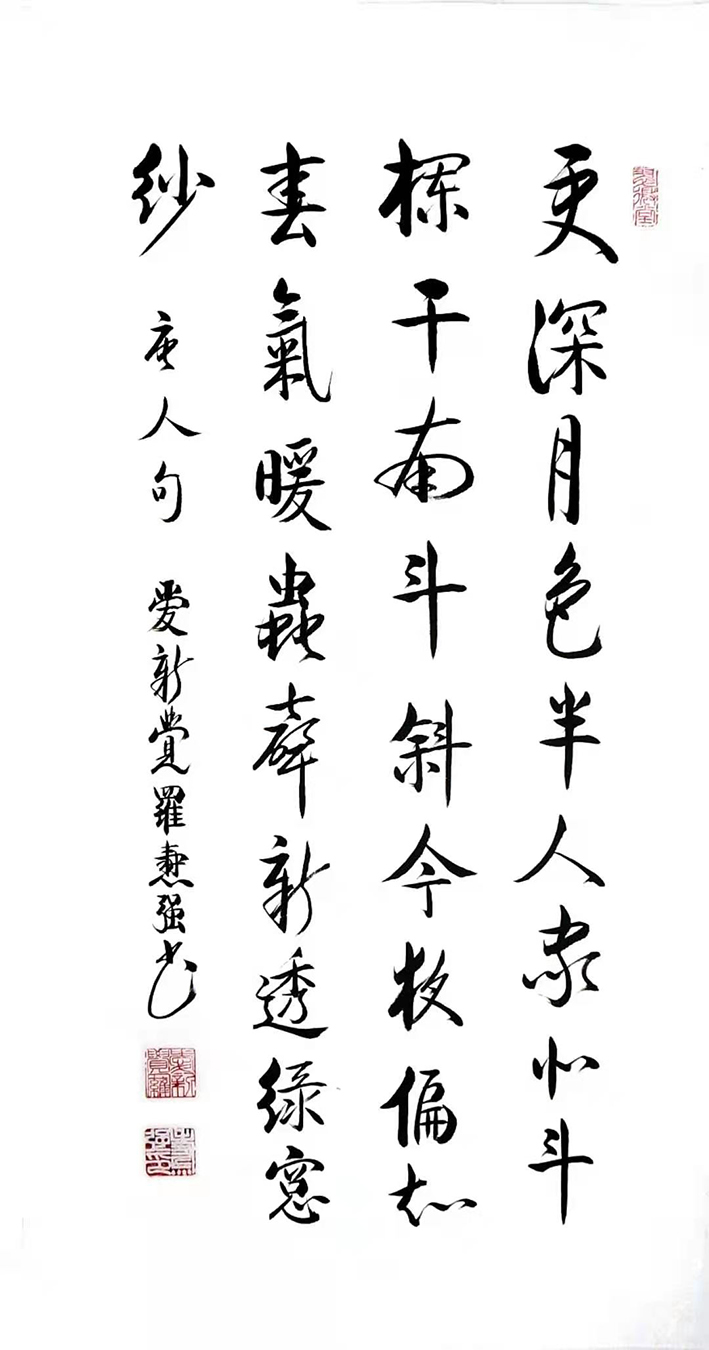 更深月色半人家北斗
欄干南斗斜今夜偏知
春氣暖蟲聲新透綠窗
紗 唐人句 愛新覺羅燾强书
愛新覺羅